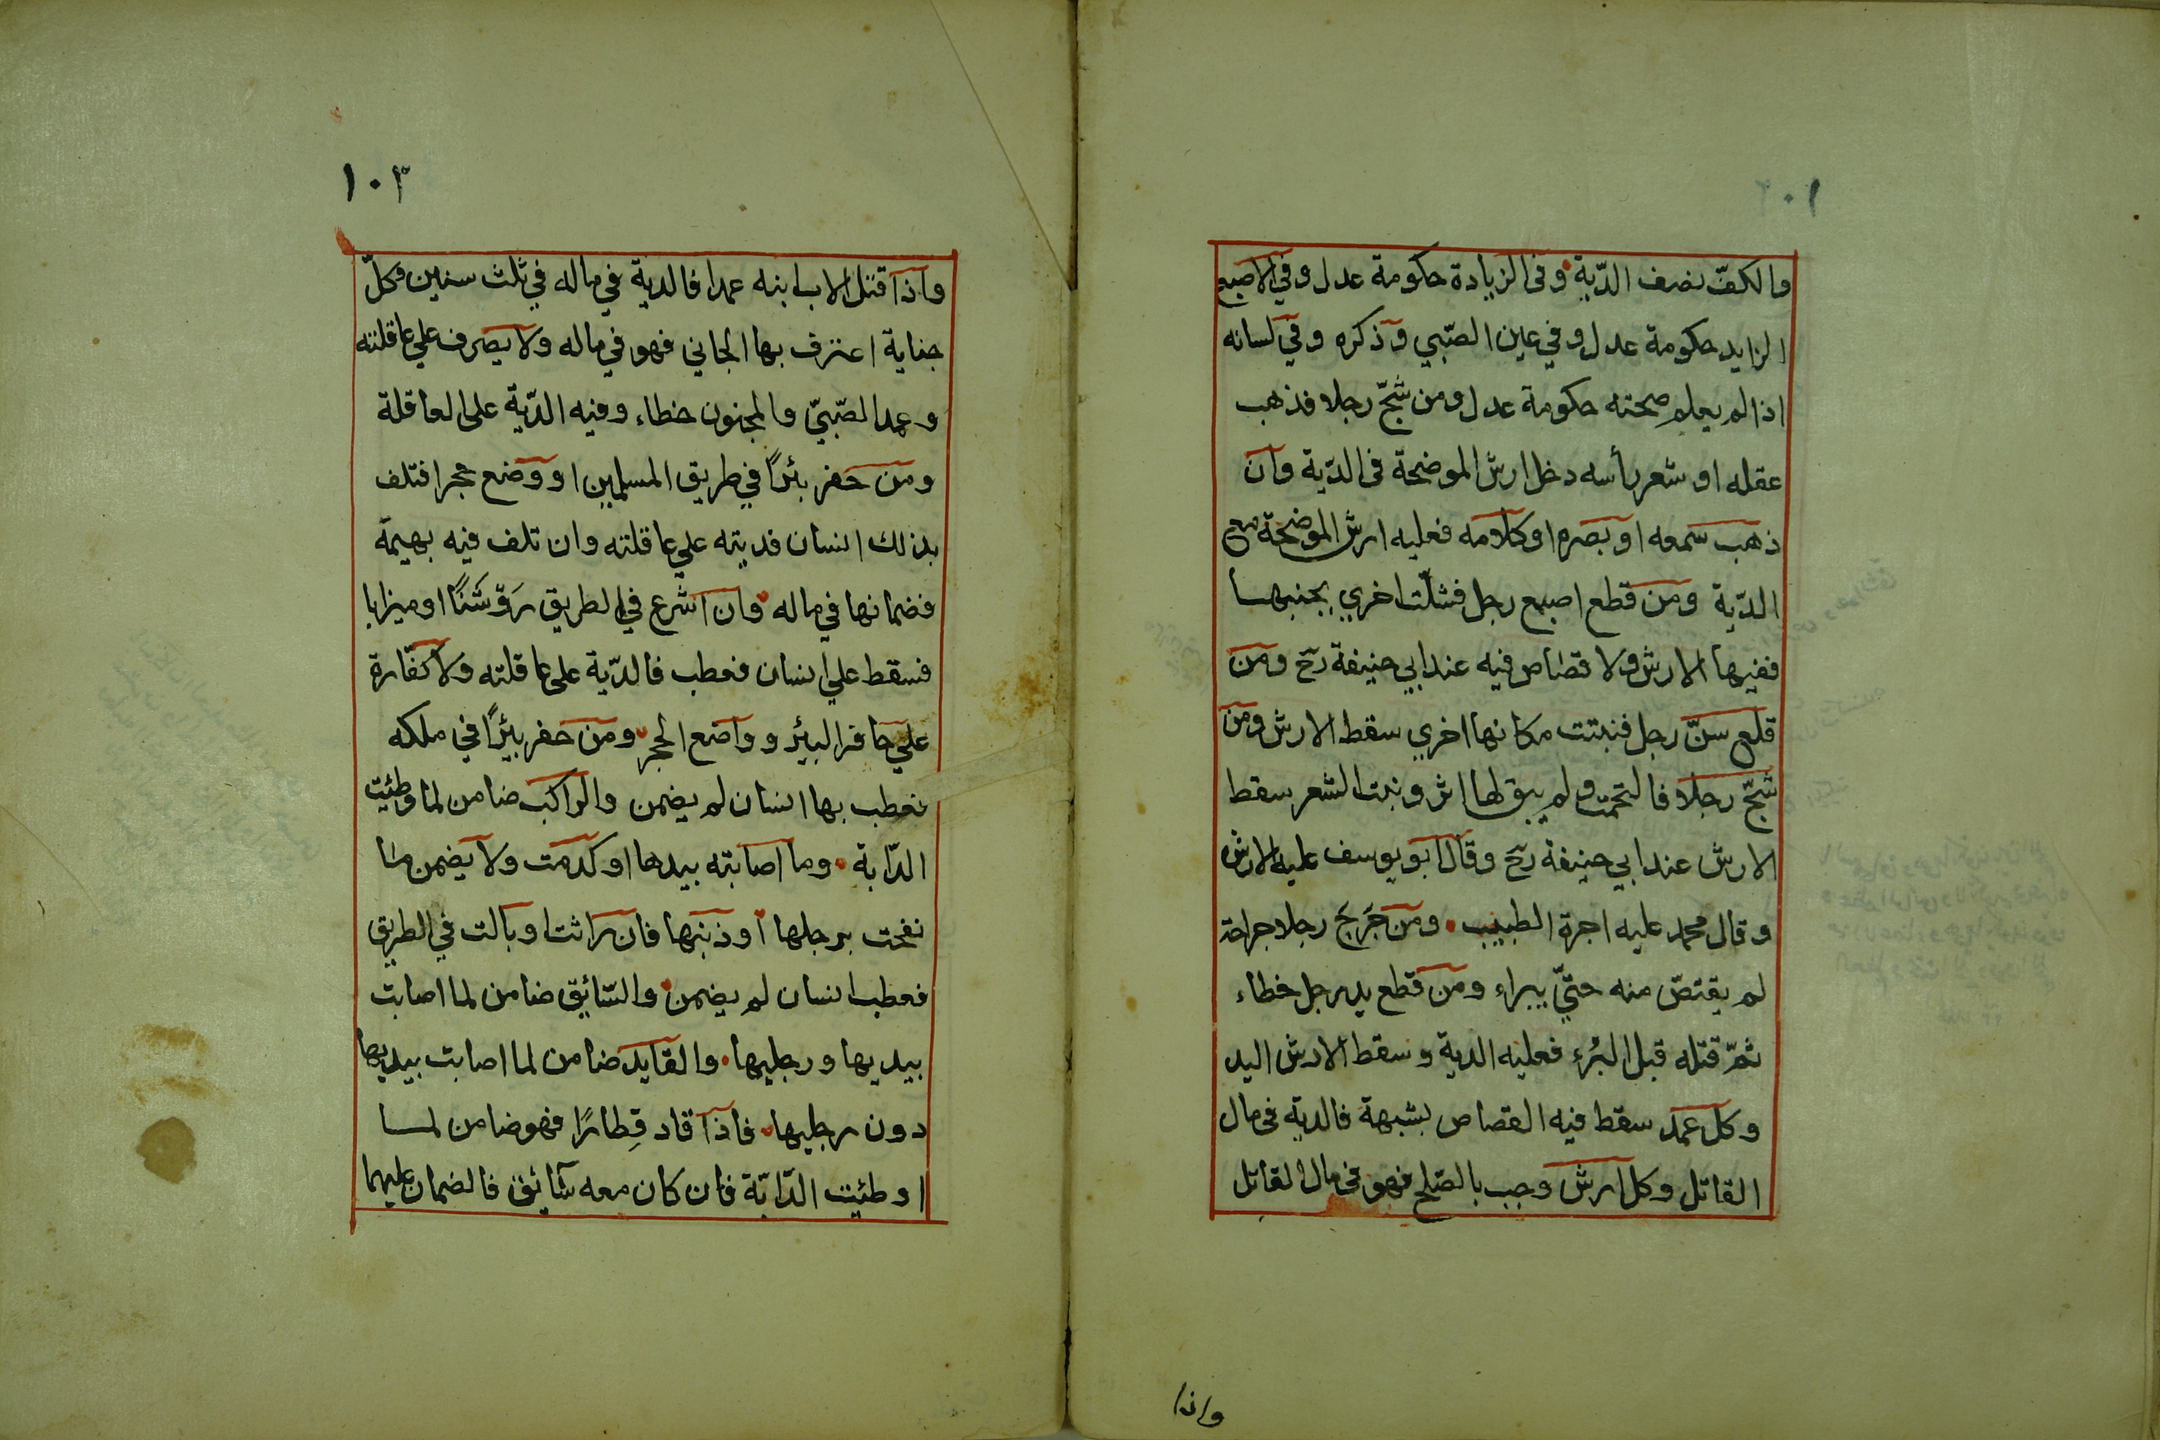 والكفّ نصف الدّية وفى الزيادة حكومة عدل وفي الاصبع
الزايد حكومة عدل وفي عين الصّبي وذكره وفي لسانه
اذا لم يعلم صحته حكومة عدل ومن شجّ رجلا فذهب
عقله او شعر رأسه دخل ارش الموضحة فى الدّية وان
ذهب سمعه او بصره او كلامه فعليه ارش الموضحة مع
الدّية ومن قطع اصبع رجل فشلّت اخري بجنبها
ففيها الارش ولا قصاص فيه عند ابي حنيفة رح ومن
قلع سنّ رجل فنبتت مكانها اخري سقط الارش ومن
شجّ رجلا فالتحمت ولم يبق لها اثر ونبت الشعر سقط
الارش عند ابي حنيفة رح وقال ابو يوسف عليه الارش
وقال محمد عليه اجرة الطبيب ومن جَرَح رجلا جراحة
لم يقتصّ منه حتيّ يبراء ومن قطع يد رجل خطاء
ثمّ قتله قبل البُرْء فعليه الدية وسقط الارش اليد
وكل عمد سقط فيه القصاص بشبهة فالدية فى مال
القاتل وكل ارش وجب بالصّلح فهو فى مال القاتل
واذا
١٠٣
واذا قتل الاب ابنه عمدا فالدية في ماله في ثلث سنين وكلّ
جناية اعترف بها الجاني فهو في ماله ولا يصرف علي عاقلته
وعمد الصّبيّ والمجنون خطاء وفيه الدّية على العاقلة
ومن حفر بئرًا في طريق المسلمين او وضع حجرا فتلف
بذلك انسان فديته علي عاقلته وان تلف فيه بهيمة
فضمانها في ماله وان اشرع في الطريق رَوْشَنًا او ميزابا
فسقط علي انسان فعطب فالدّية على عاقلته ولا كفّارة
علي حافر البئر وواضع الحجر ومن حفر بئرًا في ملكه
فعطب بها انسان لم يضمن والراكب ضامن لما وطئيت
الدّابة وما اصابته بيدها او كدمت ولا يضمن ما
نفحت برجلها او ذنبها فان راثت او بالت في الطريق
فعطب انسان لم يضمن والسّائق ضامن لما اصابت
بيديها ورجليها والقايد ضامن لما اصابت بيديها
دون رجليها فاذا قاد قِطارًا فهو ضامن لما
اوطئيت الدّابّة فان كان معه سائق فالضمان عليهما